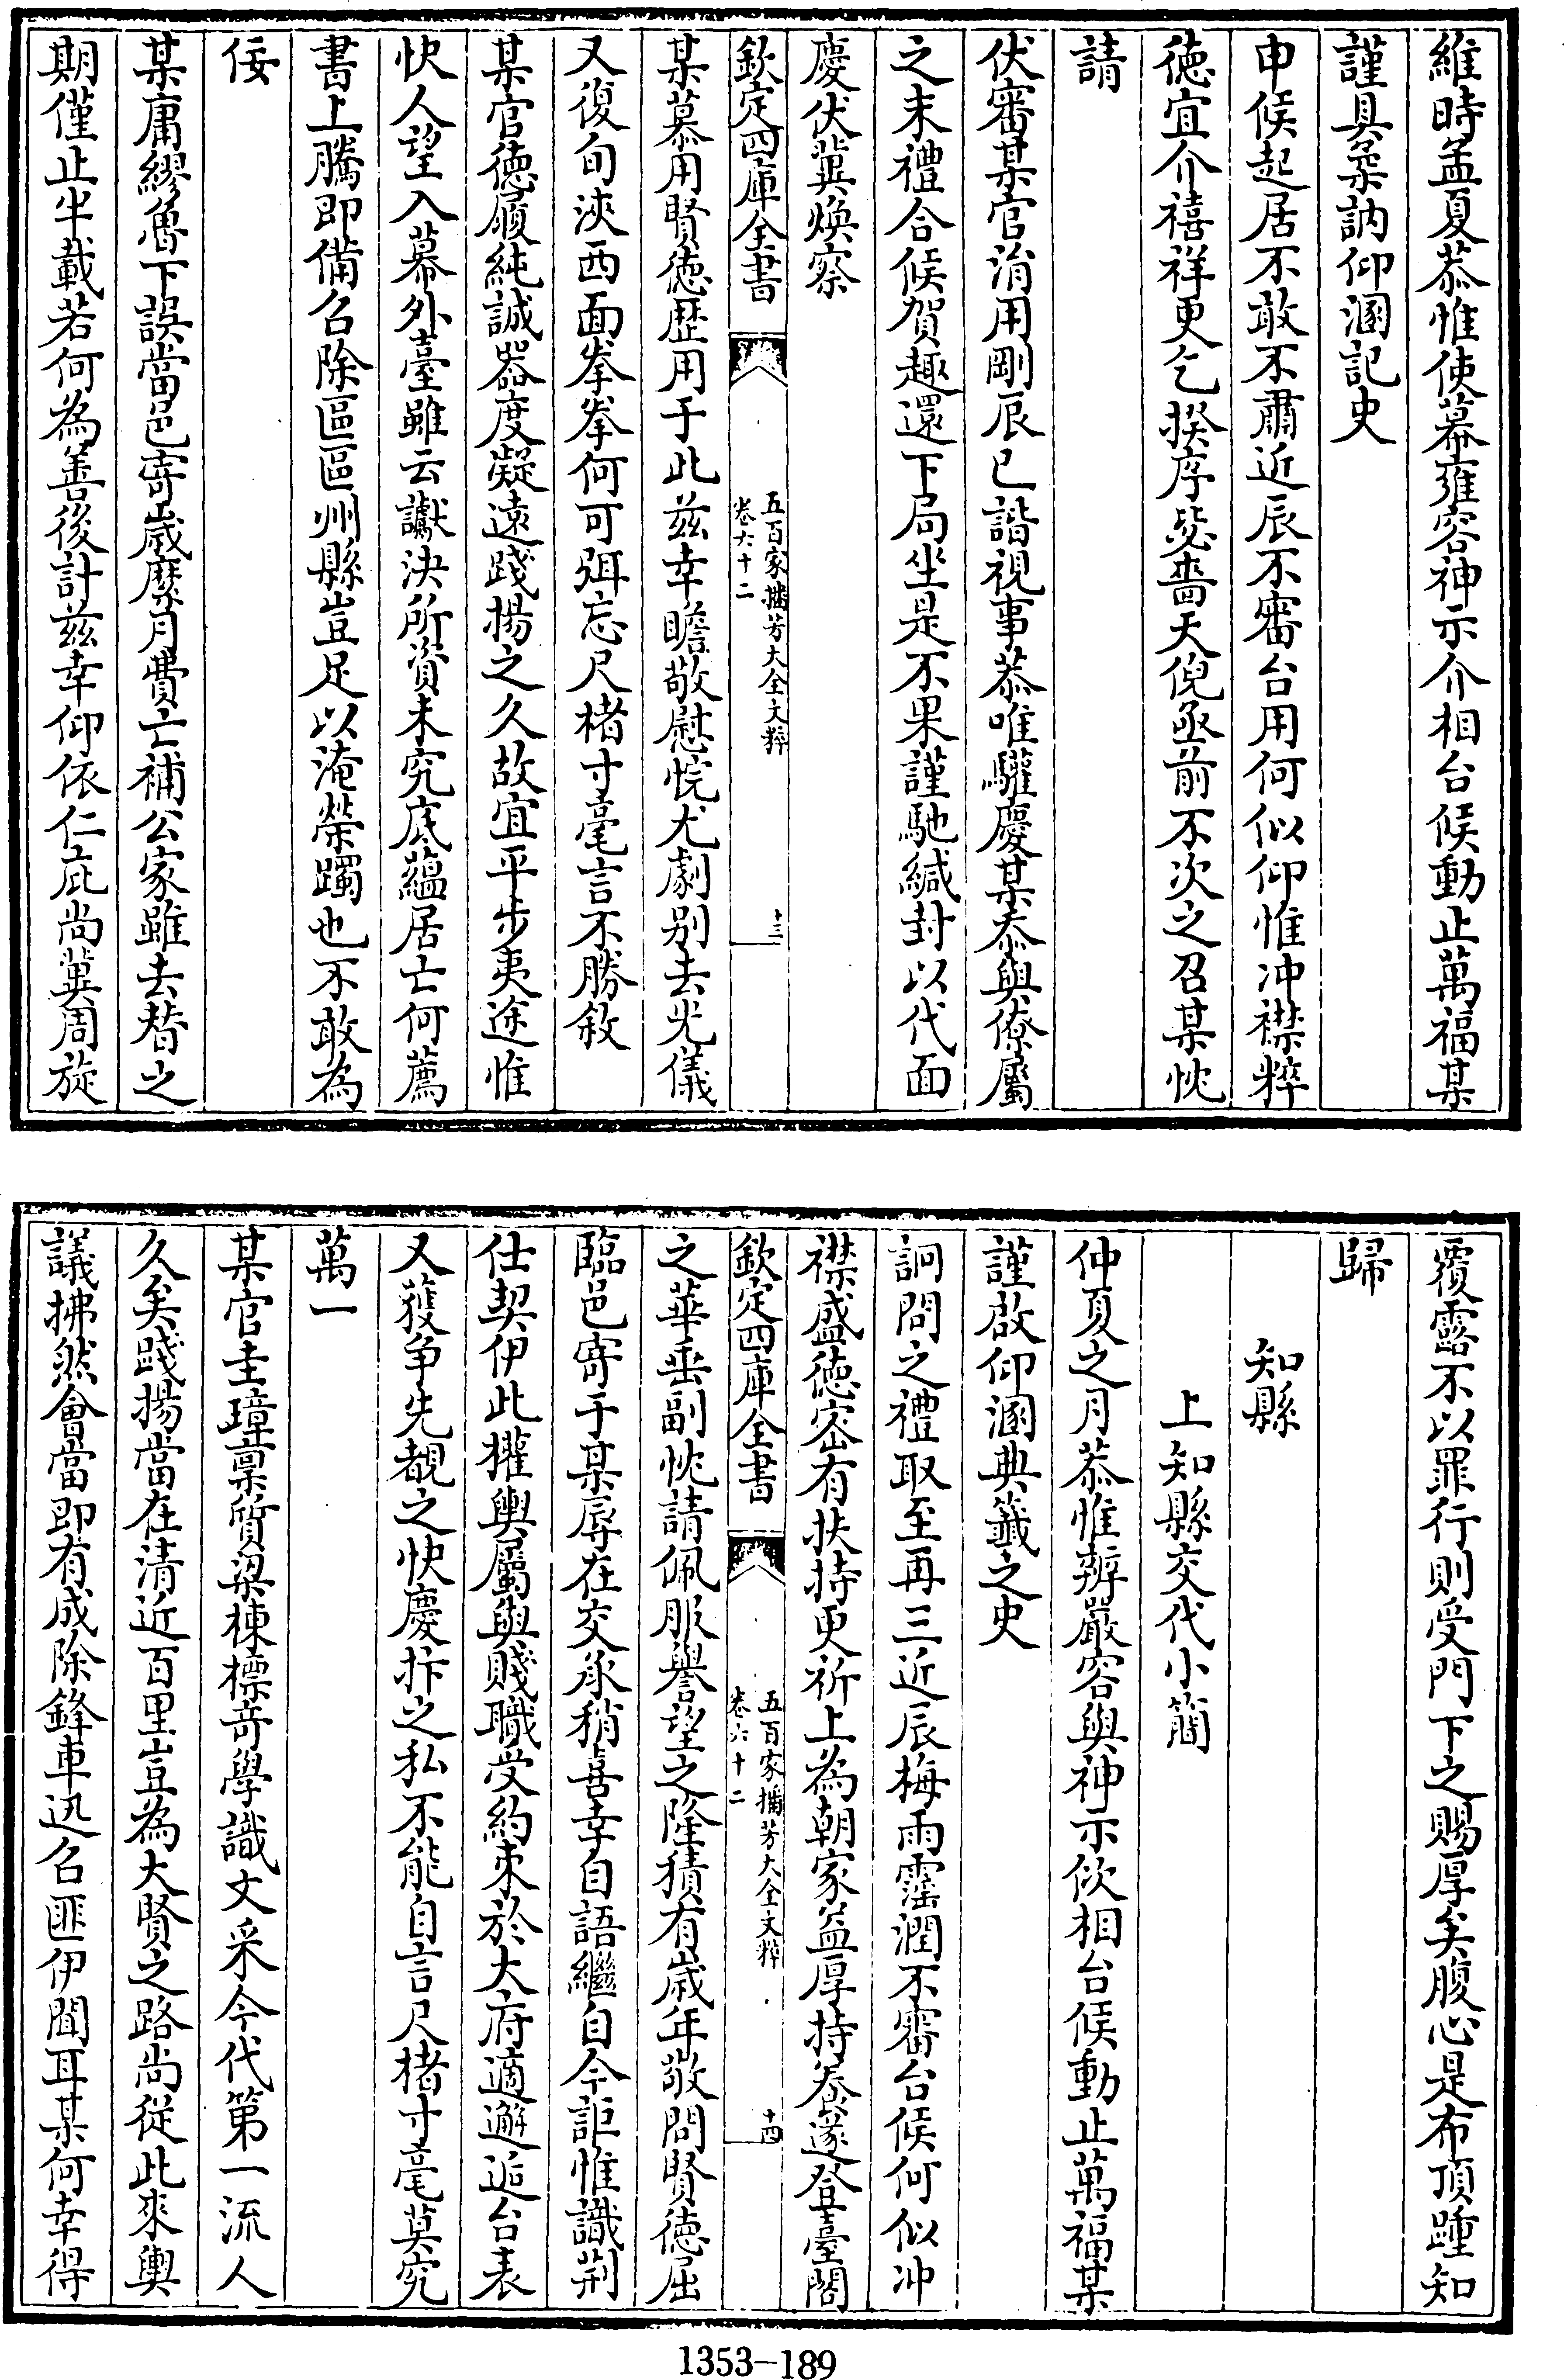 維時孟夏恭惟使幕雍容神示介相台候動止萬福某
謹具槧訥仰溷記史
申候起居不敢不肅近辰不審台用何似仰惟冲襟粹
德宜介禧祥更乞揆序毖嗇天倪亟前不次之召某忱
請
伏審某官涓用剛辰已諧視事恭唯驩慶某忝與僚屬
之末禮合候賀趣還下局坐是不果謹馳緘封以代面
慶伏冀煥察
欽定四庫全書
五百家播芳大全文粹
卷六十二
十三
某慕用賢德歴用于此兹幸瞻敬慰悅尤劇别去光儀
又復旬浹西面拳拳何可弭忘尺楮寸毫言不勝敘
某官德履純誠器度凝遠踐揚之久故宜平步夷途惟
快人望入幕外臺雖云讞決所資未究底蘊居亡何薦
書上騰即備召除區區州縣豈足以淹榮躅也不敢為
佞
某庸繆魯下誤當邑寄歲縻月費亡補公家雖去替之
期僅止半載若何為善後計兹幸仰依仁庇尚冀周旋
覆露不以罪行則受門下之賜厚矣腹心是布頂踵知
歸
知縣
上知縣交代小簡
仲夏之月恭惟辦嚴容與神示佽相台候動止萬福某
謹啟仰溷典籖之史
詗問之禮取至再三近辰梅雨霑潤不審台候何似冲
襟盛德密有扶持更祈上為朝家益厚持養遂登臺閣
欽定四庫全書
五百家播芳大全文粹
卷六十二
十四
之華垂副忱請佩服譽望之隆積有歲年敬問賢德屈
臨邑寄于某辱在交承稍喜幸自語繼自今詎惟識荆
仕契伊此權輿屬與賤職受約束於大府適邂逅台表
又獲争先覩之快慶抃之私不能自言尺楮寸毫莫究
萬一
某官圭璋稟質梁棟標奇學識文采今代第一流人
久矣踐揚當在清近百里豈為大賢之路尚從此來輿
議拂然會當即有成除鋒車迅召匪伊閶耳某何幸得
1353-189